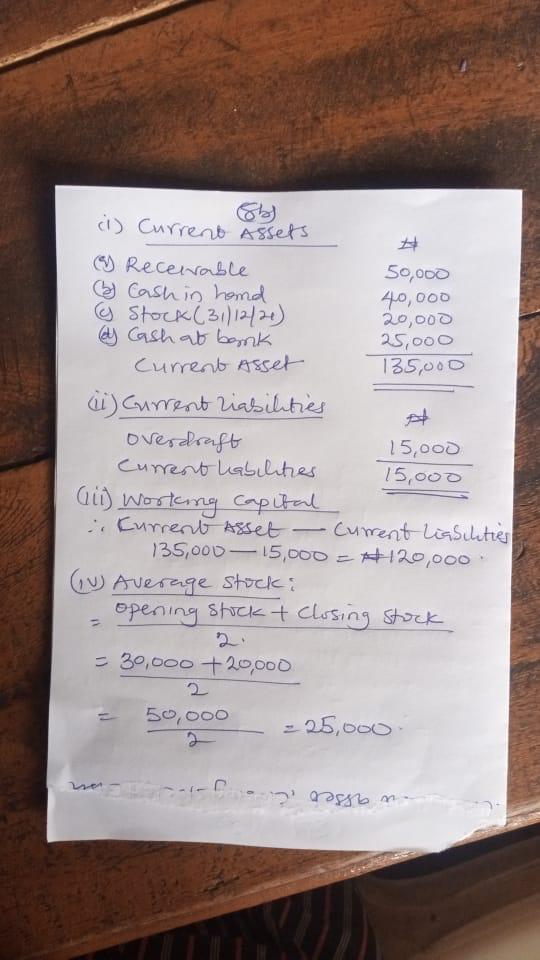 8b)
(i) Current Assets
₦
(a) Receivable 50,000
(b) Cash in hand 40,000
(c) Stock (31/12/21) 20,000
(d) Cash at bank 25,000
Current Asset 135,000
(ii) Current Liabilities ₦
Overdraft 15,000
Current liabilities 15,000
(iii) Working Capital
∴ Current Asset — Current Liabilities
135,000 — 15,000 = ₦120,000.
(iv) Average Stock:
= Opening Stock + Closing Stock
2.
= 30,000 + 20,000
2
= 50,000 = 25,000.
2